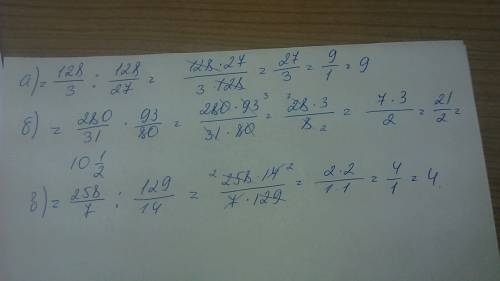 а) = 128/3 : 128/27 = 128·27/3·128 = 27/3 = 9/1 = 9
б) = 280/31 · 93/80 = 280·93/31·80 = 28·3/8 = 7·3/2 = 21/2 =
10 1/2
в) = 258/7 : 129/14 = 258·14/7·129 = 2·2/1·1 = 4/1 = 4.